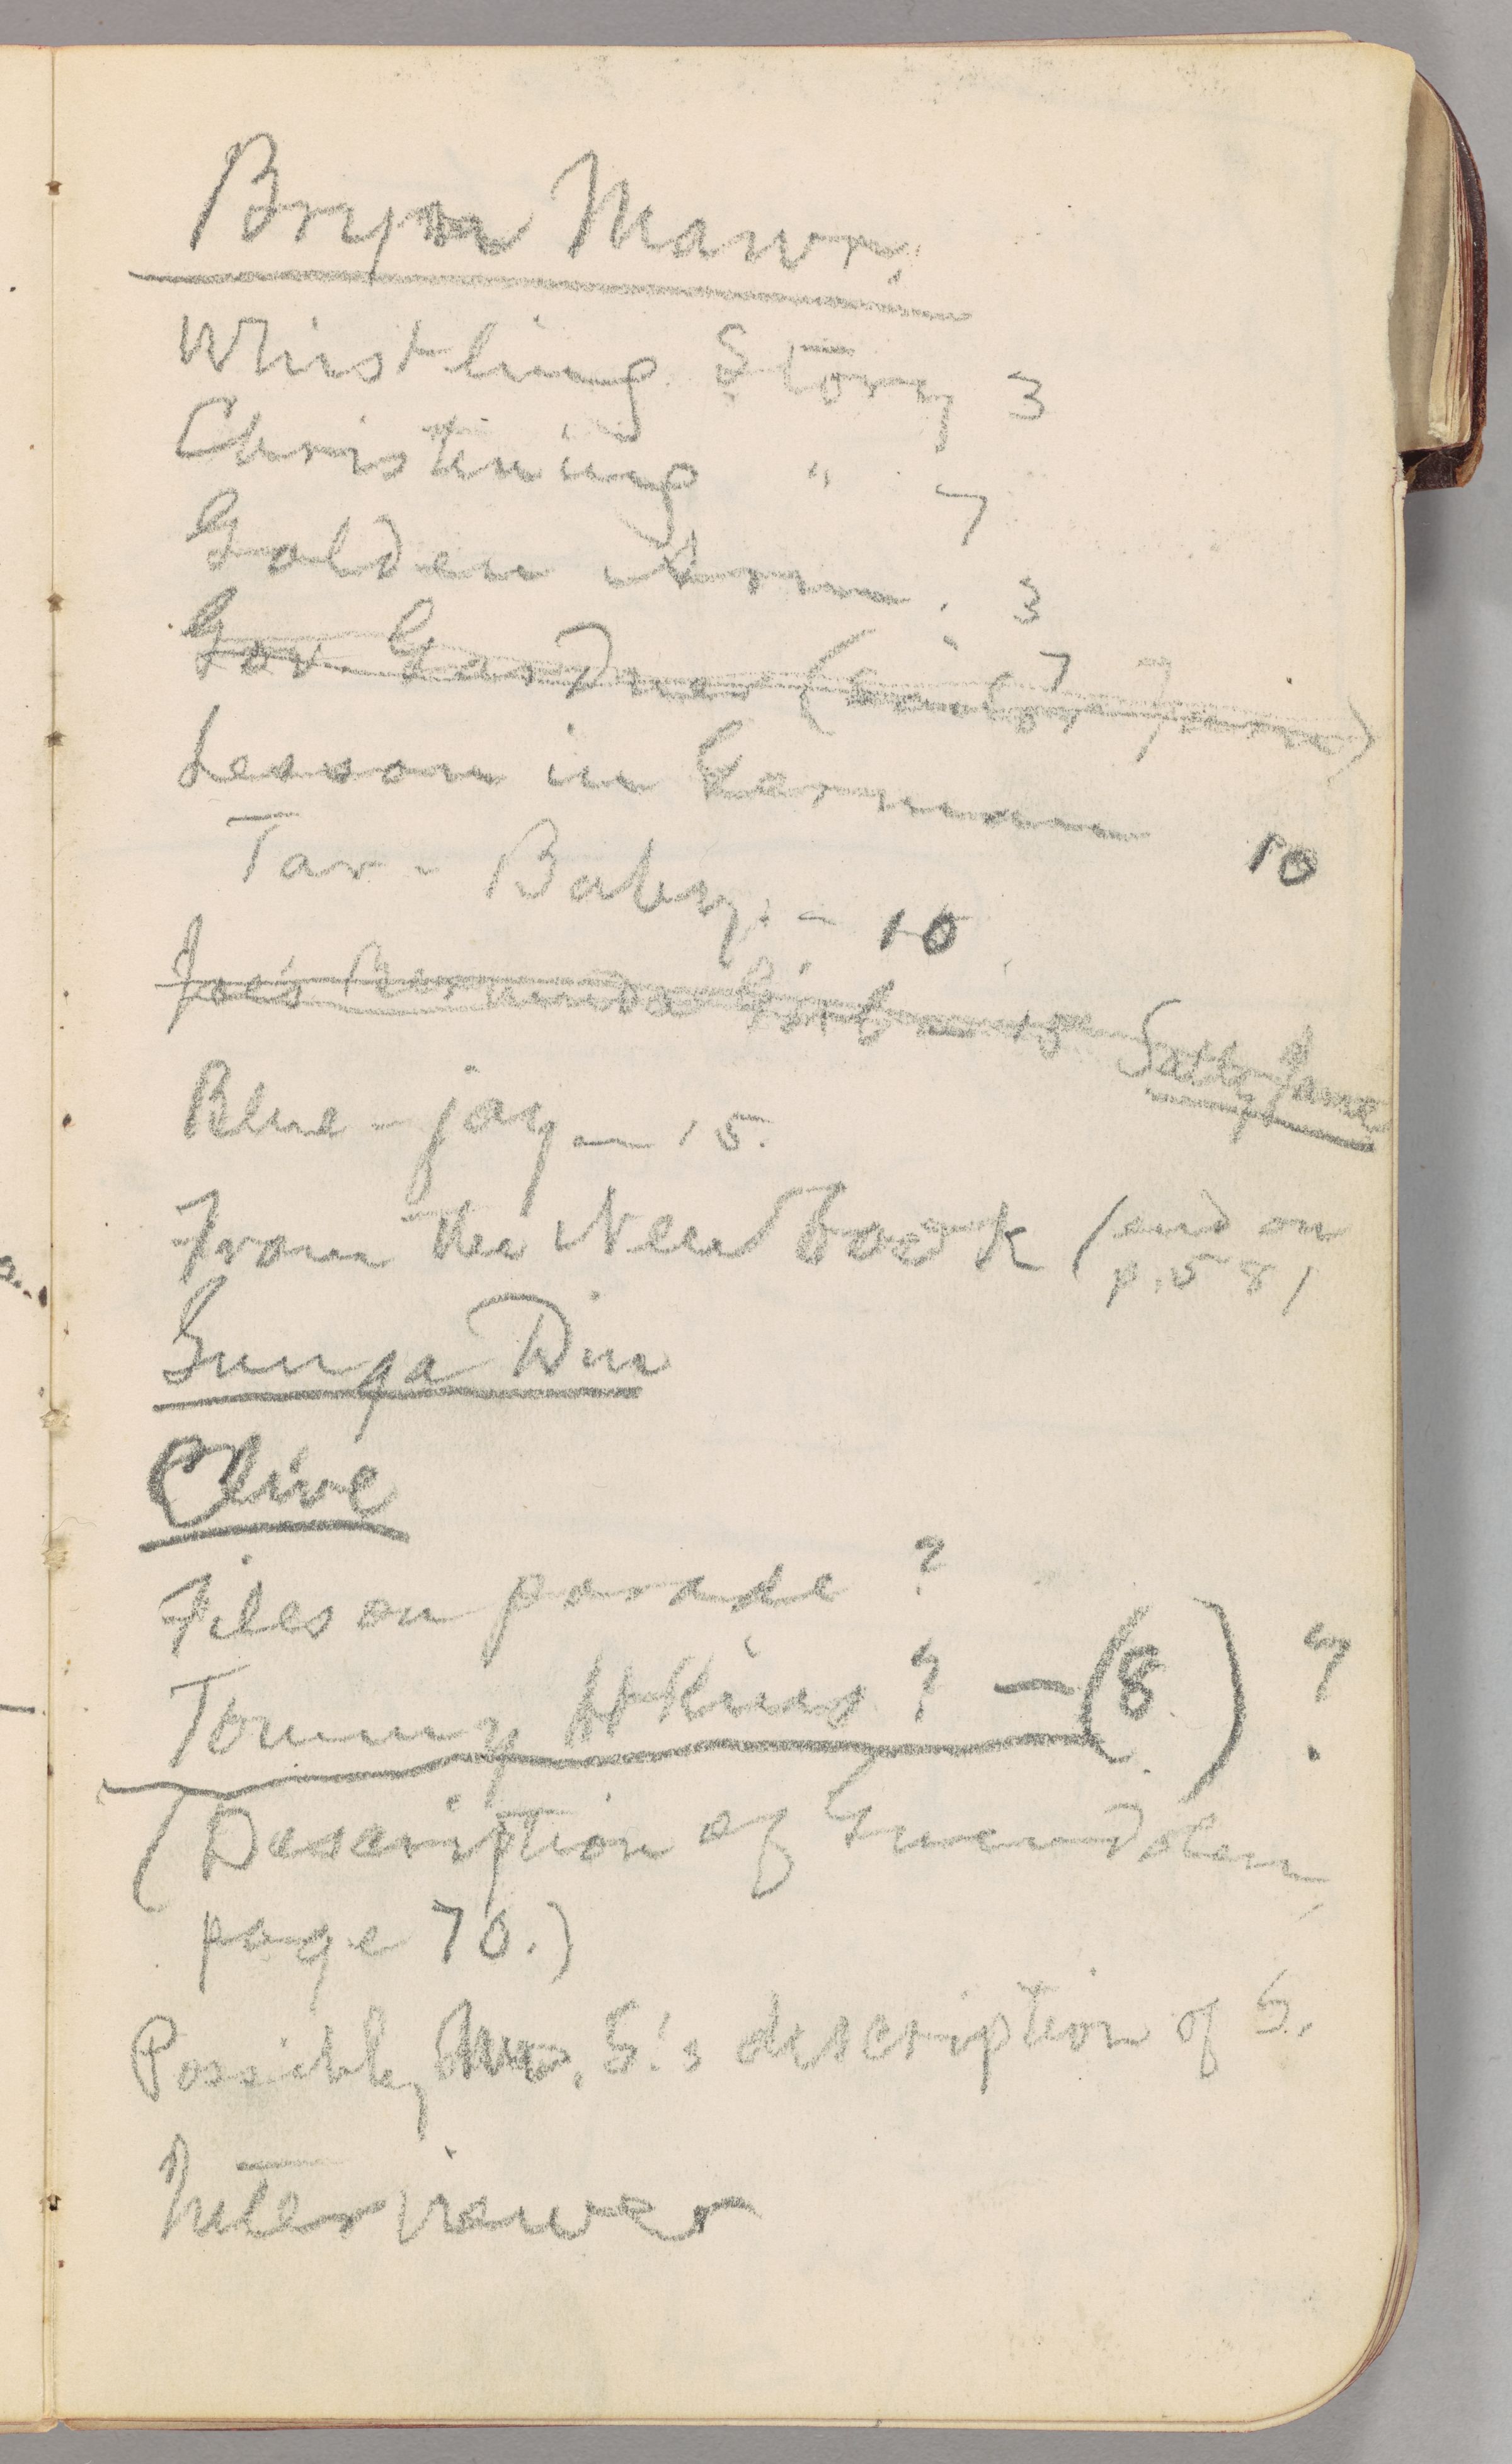 Bryn Mawr.
Whistling Story 3
Christening " 7
Golden Arm. 3
Gov. Gardner (Sailor 7 7
Lesson in German 10
Tar-Baby. - 10
Joe's Bermuda Girl - 15 Sally Jane
Blue-jay - 15.
From the New book (end on
p. 58)
Gunga Din
Clive
Files on parade ?
Tommy Atkins ? - (8) ?
(Description of Gwendolen,
page 70.)
Possibly Mrs. S.'s description of S.
Interviewer